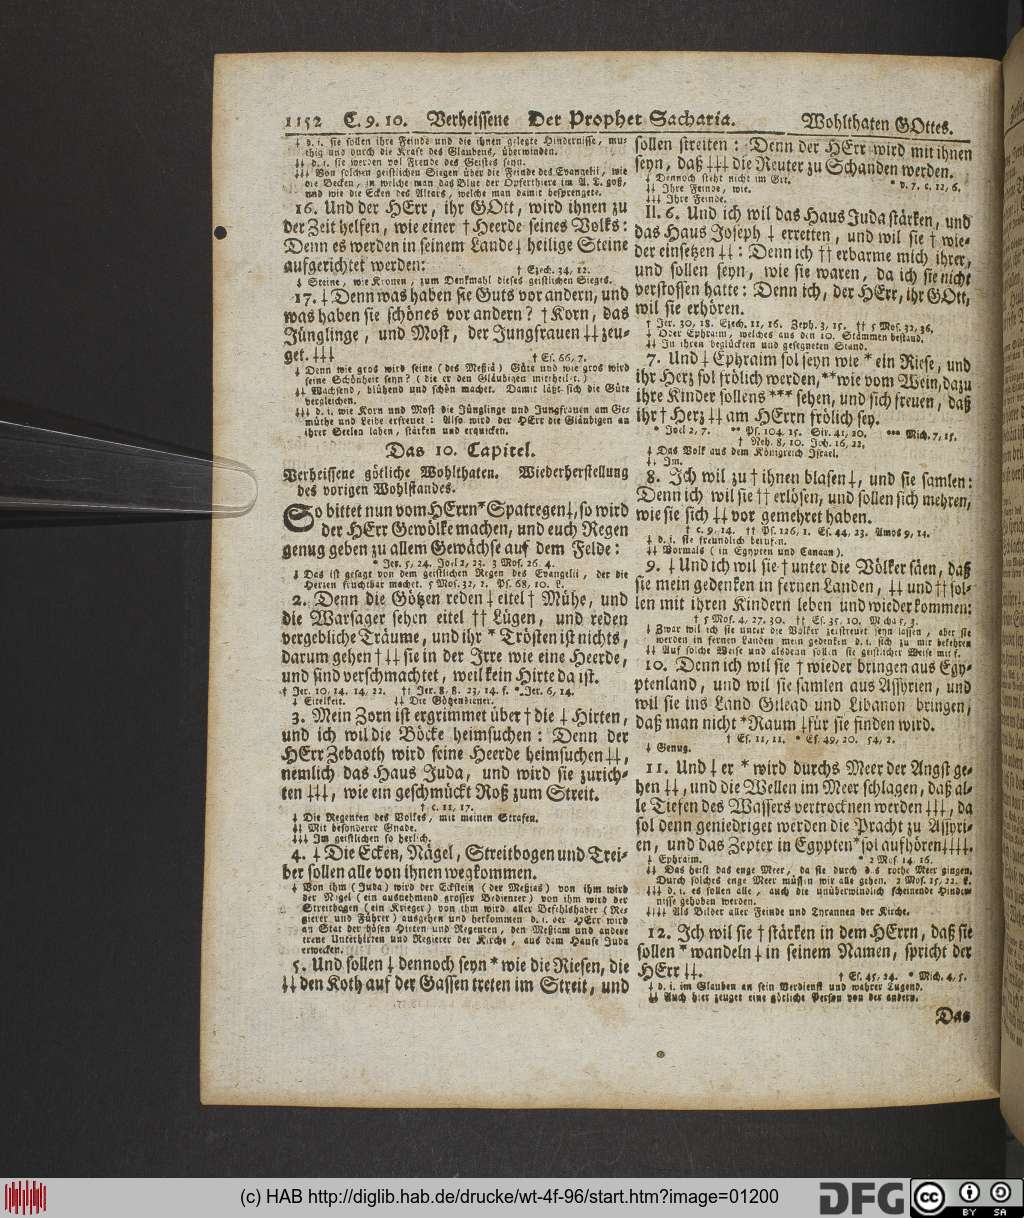 1152 C. 9. 10. Verheissene Der Prophet Sacharia. Wohlthaten GOttes.
⸸ d. i. sie sollen ihre Feinde und die ihnen gelegte Hindernisse, mu-
thig und durch die Kraft des Glaubens, überwinden.
⸸⸸ d. i. sie werden vol Freude des Geistes seyn.
⸸⸸⸸ Von solchen geistlichen Siegen über die Feinde des Evangelii, wie
die Becken, in welche man das Blut der Opferthiere im A. T. goß,
und wie die Ecken des Altars, welche man damit besprengete.
16. Und der HErr, ihr GOtt, wird ihnen zu
der Zeit helfen, wie einer † Heerde seines Volks:
Denn es werden in seinem Lande ⸸ heilige Steine
aufgerichtet werden: † Ezech. 34, 12.
⸸ Steine, wie Kronen, zum Denkmahl dieses geistlichen Sieges.
17. ⸸ Denn was haben sie Guts vor andern, und
was haben sie schönes vor andern? † Korn, das
Jünglinge, und Most, der Jungfrauen ⸸⸸ zeu-
get. ⸸⸸⸸ † Es. 66, 7.
⸸ Denn wie gros wird seine (des Meßiä) Güte und wie gros wird
seine Schönheit seyn? (die er den Gläubigen mittheilet.)
⸸⸸ Wachsend, blühend und schön machet. Damit läßt sich die Güte
vergleichen.
⸸⸸⸸ d. i. wie Korn und Most die Jünglinge und Jungfrauen am Ge-
müthe und Leibe erfreuet: Also wird der HErr die Gläubigen an
ihrer Seelen laben, stärken und erquicken.
Das 10. Capitel.
Verheissene götliche Wohlthaten. Wiederherstellung
des vorigen Wohlstandes.
So bittet nun vom HErrn * Spatregen ⸸, so wird
der HErr Gewölke machen, und euch Regen
genug geben zu allem Gewächse auf dem Felde:
* Jer. 5, 24. Joel 2, 23. 3 Mos. 26. 4.
⸸ Das ist gesagt von dem geistlichen Regen des Evangelii, der die
Herzen fruchtbar machet. 5 Mos. 32, 2. Ps. 68, 10. f.
2. Denn die Götzen reden ⸸ eitel † Mühe, und
die Warsager sehen eitel †† Lügen, und reden
vergebliche Träume, und ihr * Trösten ist nichts,
darum gehen † ⸸⸸ sie in der Irre wie eine Heerde,
und sind verschmachtet, weil kein Hirte da ist.
† Jer. 10, 14. 14, 22. †† Jer. 8, 8. 23, 14. f. * Jer. 6, 14.
⸸ Eitelkeit. ⸸⸸ Die Götzendiener.
3. Mein Zorn ist ergrimmet über † die ⸸ Hirten,
und ich wil die Böcke heimsuchen: Denn der
HErr Zebaoth wird seine Heerde heimsuchen ⸸⸸,
nemlich das Haus Juda, und wird sie zurich-
ten ⸸⸸⸸, wie ein geschmückt Roß zum Streit.
† c. 11, 17.
⸸ Die Regenten des Volkes, mit meinen Strafen.
⸸⸸ Mit besonderer Gnade.
⸸⸸⸸ Im geistlichen so herlich.
4. ⸸ Die Ecken, Nägel, Streitbogen und Trei-
ber sollen alle von ihnen wegkommen.
⸸ Von ihm (Juda) wird der Eckstein (der Meßias) von ihm wird
der Nagel (ein ausnehmend grosser Bedienter) von ihm wird der
Streitbogen (ein Krieger) von ihm wird aller Befehlshaber (Re-
gierer und Führer) ausgehen und herkommen d. i. der HErr wird
an Stat der bösen Hirten und Regenten, den Meßiam und andere
treue Unterhirten und Regierer der Kirche, aus dem Hause Juda
erwecken.
5. Und sollen ⸸ dennoch seyn * wie die Riesen, die
⸸⸸ den Koth auf der Gassen treten im Streit, und
sollen streiten: Denn der HErr wird mit ihnen
seyn, daß ⸸⸸⸸ die Reuter zu Schanden werden.
⸸ Dennoch steht nicht im Gr. * v. 7. c. 12, 6.
⸸⸸ Ihre Feinde, wie.
⸸⸸⸸ Ihre Feinde.
II. 6. Und ich wil das Haus Juda stärken, und
das Haus Joseph ⸸ erretten, und wil sie † wie-
der einsetzen ⸸⸸: Denn ich †† erbarme mich ihrer,
und sollen seyn, wie sie waren, da ich sie nicht
verstossen hatte: Denn ich, der HErr, ihr GOtt,
wil sie erhören.
† Jer. 30, 18. Ezech. 11, 16. Zeph. 3, 15. †† 5 Mos. 32, 36.
⸸ Oder Ephraim, welches aus den 10. Stämmen bestand.
⸸⸸ In ihren beglückten und gesegneten Stand.
7. Und ⸸ Ephraim sol seyn wie * ein Riese, und
ihr Herz sol frölich werden, ** wie vom Wein, dazu
ihre Kinder sollens *** sehen, und sich freuen, daß
ihr † Herz ⸸⸸ am HErrn frölich sey.
* Joel 2, 7. ** Ps. 104. 15. Sir. 41, 20. *** Mich. 7, 15.
† Neh. 8, 10. Joh. 16, 22.
⸸ Das Volk aus dem Königreich Israel.
⸸⸸ Im.
8. Ich wil zu † ihnen blasen ⸸, und sie samlen:
Denn ich wil sie †† erlösen, und sollen sich mehren,
wie sie sich ⸸⸸ vor gemehret haben.
† c. 9, 14. †† Ps. 126, 1. Es. 44, 23. Amos 9, 14.
⸸ d. i. sie freundlich berufen.
⸸⸸ Vormals (in Egypten und Canaan).
9. ⸸ Und ich wil sie † unter die Völker säen, daß
sie mein gedenken in fernen Landen, ⸸⸸ und †† sol-
len mit ihren Kindern leben und wieder kommen:
† 5 Mos. 4, 27. 30. †† Es. 35, 10. Micha 5, 3.
⸸ Zwar wil ich sie unter die Völker zerstreuet seyn lassen, aber sie
werden in fernen Landen mein gedenken d. i. sich zu mir bekehren
⸸⸸ Auf solche Weise und alsdenn sollen sie geistlicher Weise mit f.
10. Denn ich wil sie † wieder bringen aus Egy-
ptenland, und wil sie samlen aus Assyrien, und
wil sie ins Land Gilead und Libanon bringen,
daß man nicht * Raum ⸸ für sie finden wird.
† Es. 11, 11. * Es. 49, 20. 54, 2.
⸸ Genug.
11. Und ⸸ er * wird durchs Meer der Angst ge-
hen ⸸⸸, und die Wellen im Meer schlagen, daß al-
le Tiefen des Wassers vertrocknen werden ⸸⸸⸸, da
sol denn geniedriget werden die Pracht zu Assyri-
en, und das Zepter in Egypten * sol aufhören ⸸⸸⸸⸸.
⸸ Ephraim. * 2 Mos. 14. 16.
⸸⸸ Das heist das enge Meer, da sie durch d.s rothe Meer gingen.
Durch solches enge Meer müssen wir alle gehen. 2 Mos. 15, 22. f.
⸸⸸⸸ d. i. es sollen alle, auch die unüberwindlich scheinende Hinder-
nisse gehoben werden.
⸸⸸⸸⸸ Als Bilder aller Feinde und Tyrannen der Kirche.
12. Ich wil sie † stärken in dem HErrn, daß sie
sollen * wandeln ⸸ in seinem Namen, spricht der
HErr ⸸⸸. † Es. 45, 24. * Mich. 4, 5.
⸸ d. i. im Glauben an sein Verdienst und wahrer Tugend.
⸸⸸ Auch hier zeuget eine götliche Person von der andern.
Das
(c) HAB http://diglib.hab.de/drucke/wt-4f-96/start.htm?image=01200
DFG
cc BY SA